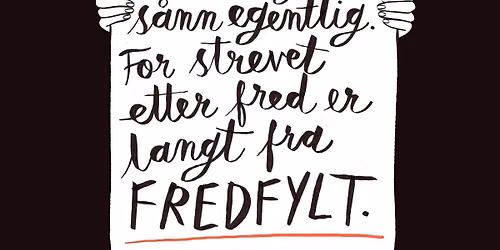 sånn egentlig.
For strevet
etter fred er
langt fra
FREDFYLT.